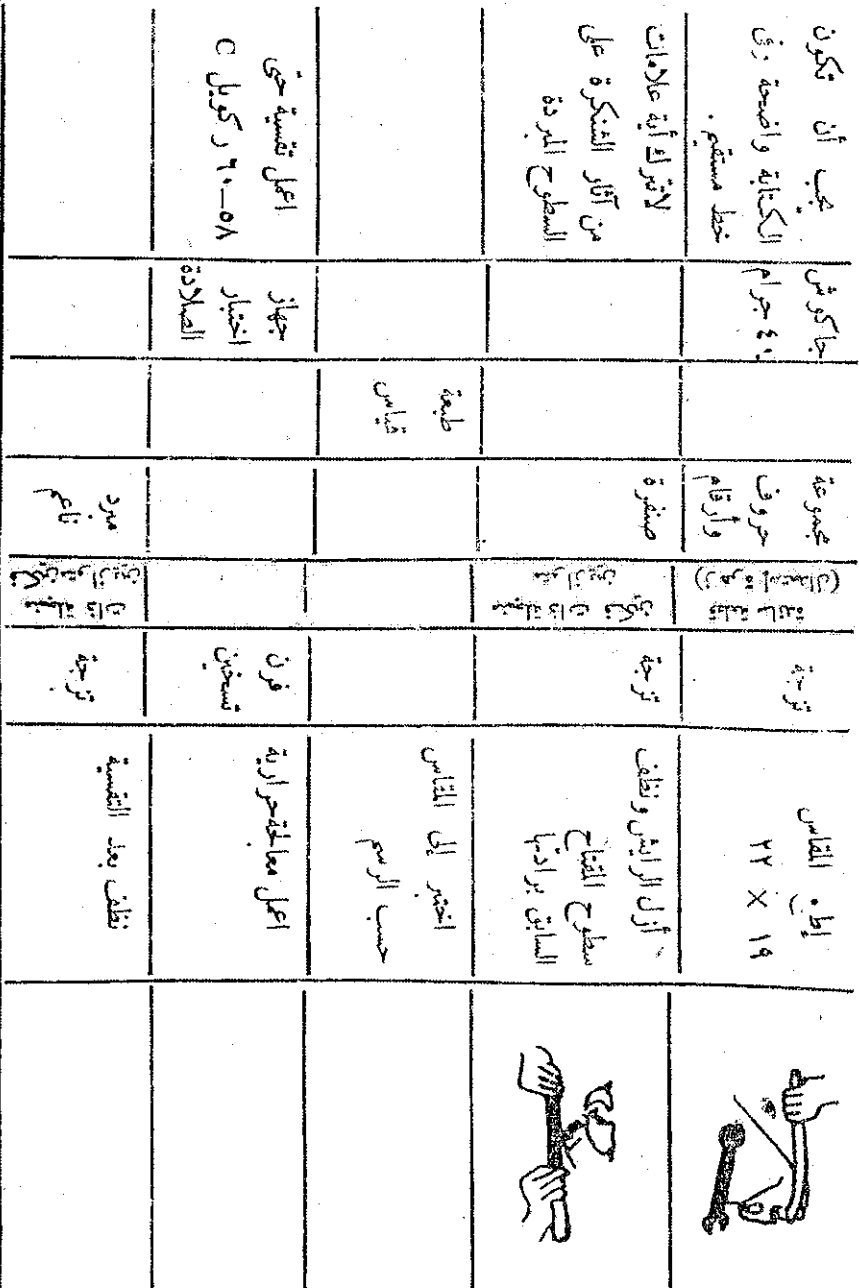 المقاس
١٩ × ٢٢
تزجة
(زهرة إستعدال)
مجموعة
حروف
وأرقام
جاكوش
جرام
يجب أن تكون
الكتابة واضحة وفي
خط مستقيم .
أزل الرايش ونظف
سطوح المفتاح
السابق برادتها
تزجة
صنفرة
لاتترك أية علامات
من آثار الشنكرة على
السطوح المبردة
اختبر إلى المقاس
حسب الرسم
طبعة
قياس
اعمل معالجة حرارية
فرن
تسخين
جهاز
اختبار
الصلادة
اعمل تقسية حتى
٥٨–٦٠ ركويل C
نظف بعد التقسية
تزجة
مبرد
ناعم